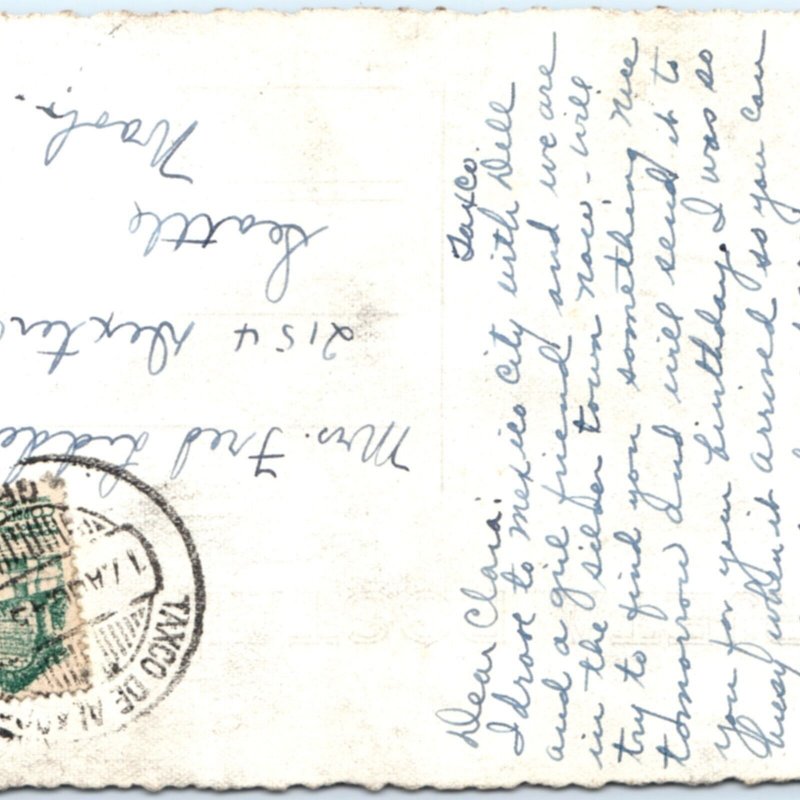 Taxco.
Dear Clara:
I drove to Mexico City with Dell
and a girl friend and we are
in the silver town now - will
try to find you something nice
tomorrow and will send it to
you for your birthday. I was so
busy when it arrived so you can
Mrs. Fred
2154 Dexter
Seattle
Wash.
17 AGO
TAXCO DE ALARC